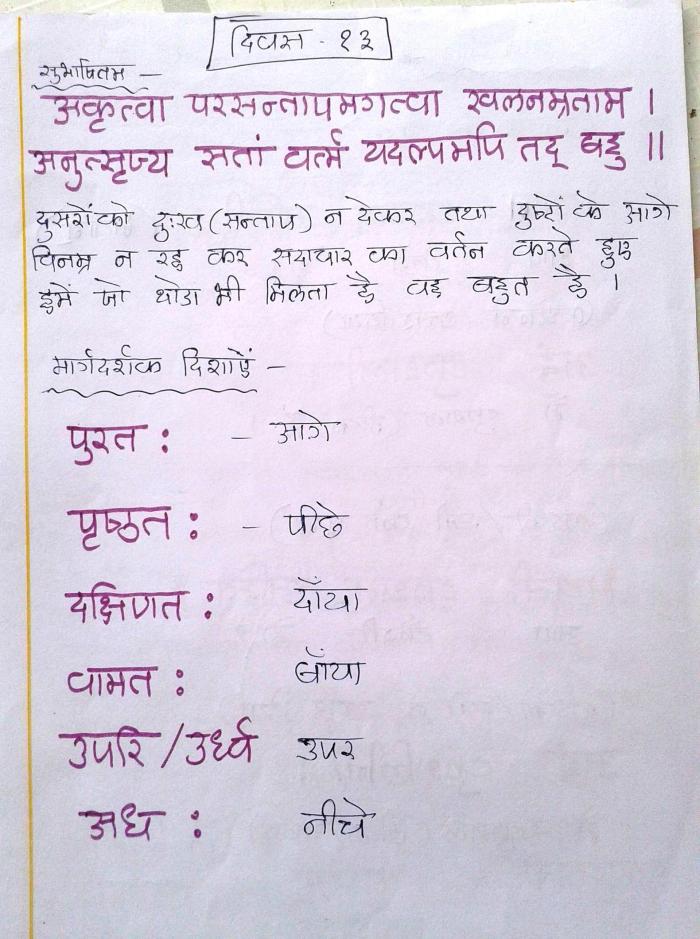 दिवस - १३
सुभाषितम -
अकृत्वा परसन्तापमगत्वा खलनम्रताम ।
अनुत्सृज्य सतां वर्त्म यदल्पमपि तद् बहु ॥
दुसरों को दुःख (सन्ताप) न देकर तथा दुष्टों के आगे
विनम्र न रह कर सदाचार का वर्तन करते हुए
हमें जो थोडा भी मिलता है वह बहुत है ।
मार्गदर्शक दिशाएँ -
पुरत : - आगे
पृष्ठत : - पीछे
दक्षिणत : दाँया
वामत : बाँया
उपरि / उर्ध्व उपर
अध : नीचे